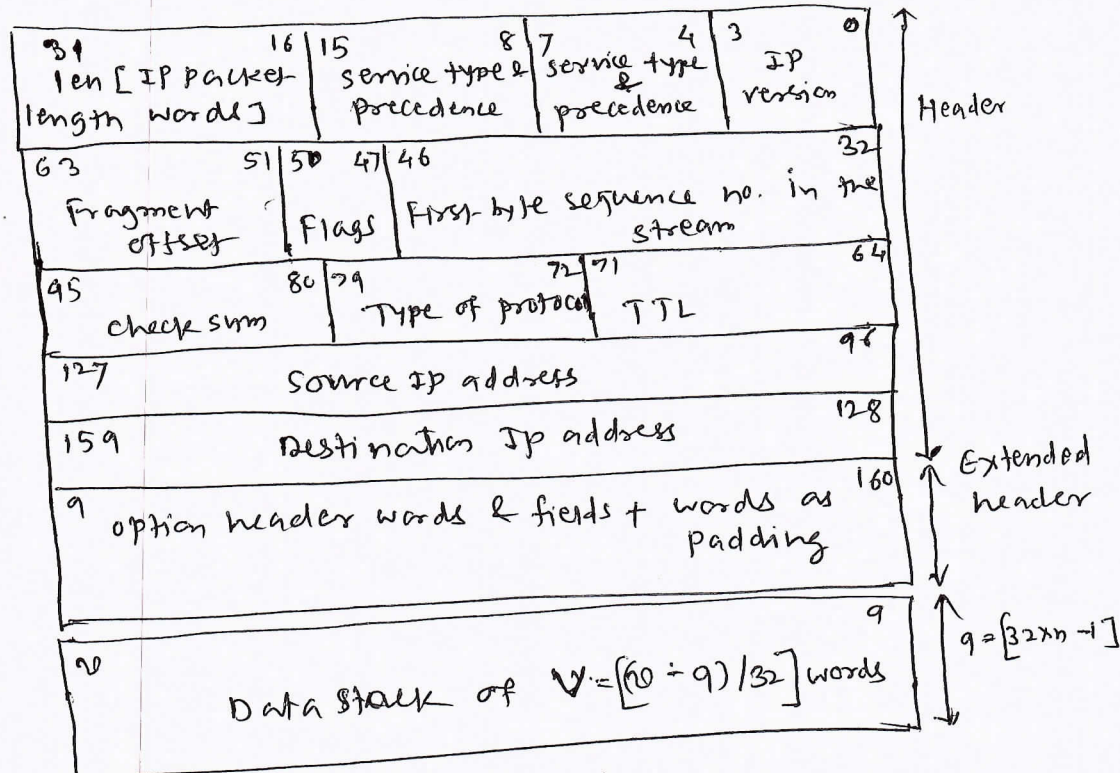 31 16 | 15 8 | 7 4 | 3 0
len [IP packet
length words]
service type &
precedence
service type
&
precedence
IP
version
Header
63 51 | 50 47 | 46 32
Fragment
offset
Flags
First byte sequence no. in the
stream
95 80 | 79 72 | 71 64
check sum
Type of protocol
TTL
127 96
Source IP address
159 128
Destination Ip address
Extended
header
9 160
option header words & fields + words as
padding
9
Data stack of V = [(v ÷ 9) / 32] words
9 = [32xn - 1]